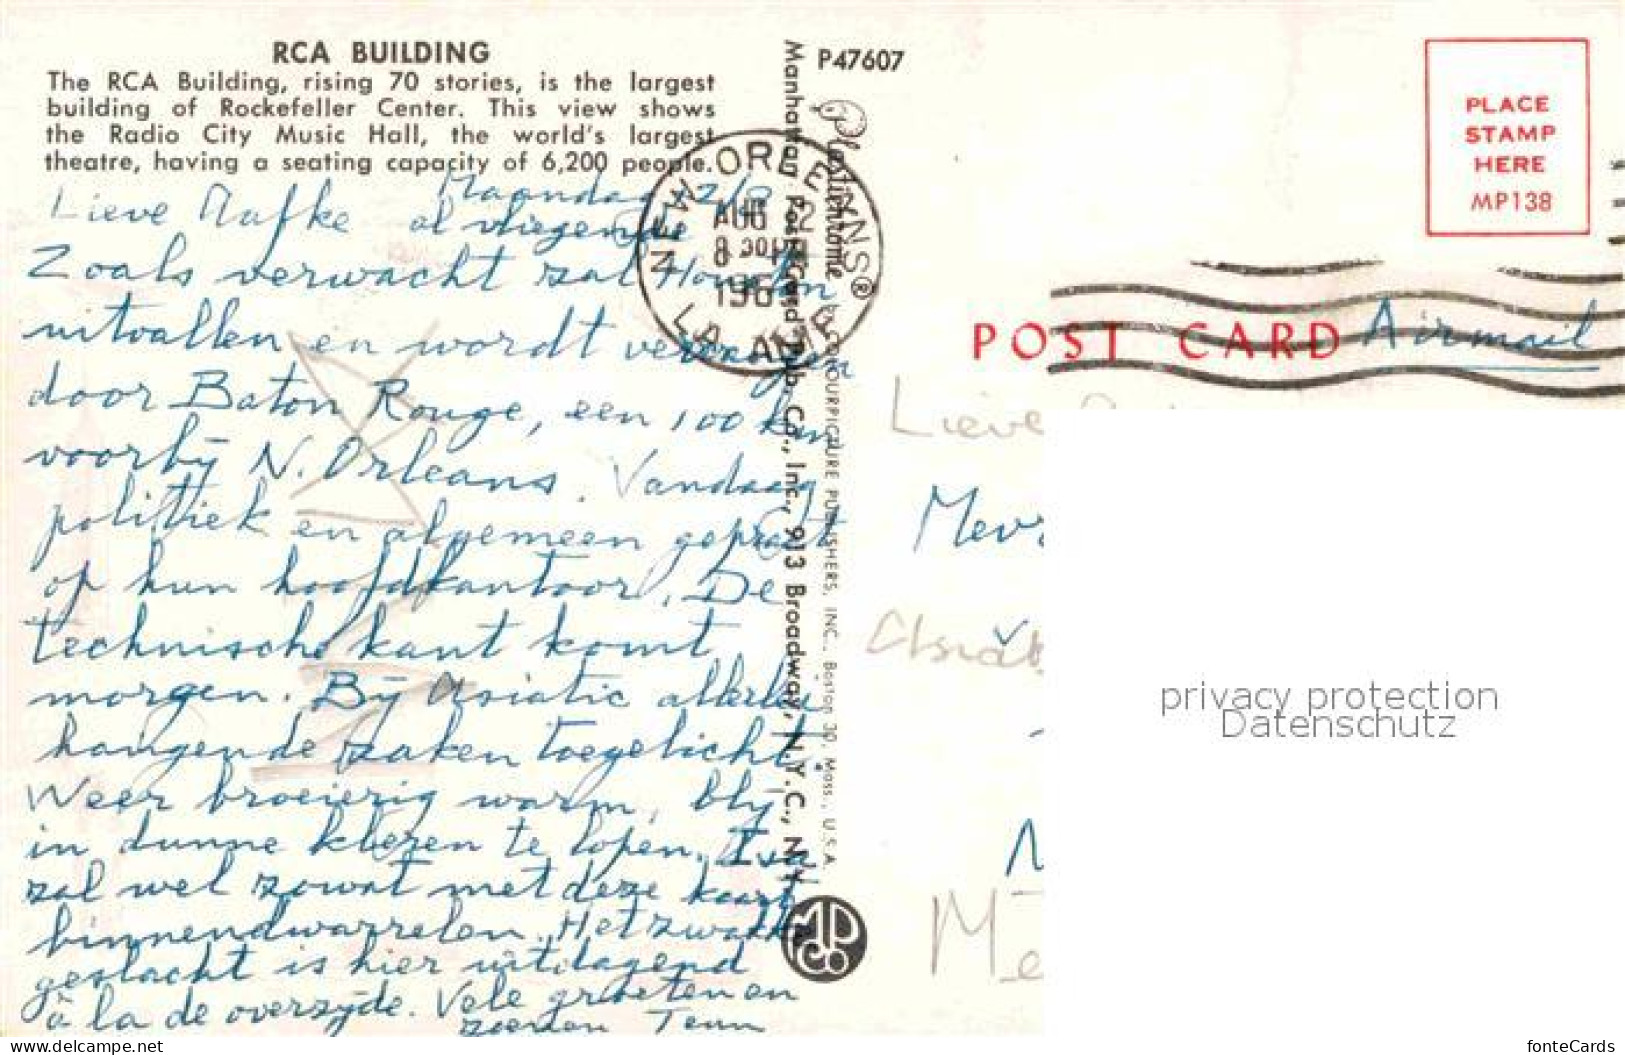 RCA BUILDING
The RCA Building, rising 70 stories, is the largest
building of Rockefeller Center. This view shows
the Radio City Music Hall, the world's largest
theatre, having a seating capacity of 6,200 people.
Maandag 12/8
Lieve al vliegende
Zoals verwacht zal Houston
uitvallen en wordt vervangen
door Baton Rouge, een 100 km
voorbij N. Orleans. Vandaag
politiek en algemeen gepraat
op hun hoofdkantoor. De
technische kant komt
morgen. Bij Asiatic allerlei
hangende zaken toegelicht.
Weer broeierig warm, blij
in dunne kleren te lopen. Iva
zal wel zowat met deze kaart
binnendwarrelen. Het zwakke
geslacht is hier uitdagend
à la de overzijde. Vele groeten en
zoenen Teun
P47607
Manhattan Post Card Pub. Co., Inc., 913 Broadway, N.Y.C., N.Y.
Plastichrome
® BY COLOURPICTURE PUBLISHERS, INC., Boston 30, Mass., U.S.A.
NEW ORLEANS
AUG 12
8 30 PM
196
LA
MPCo
PLACE
STAMP
HERE
MP138
POST CARD
Airmail
Lieve
Mev
privacy protection
Datenschutz
www.delcampe.net
fonteCards